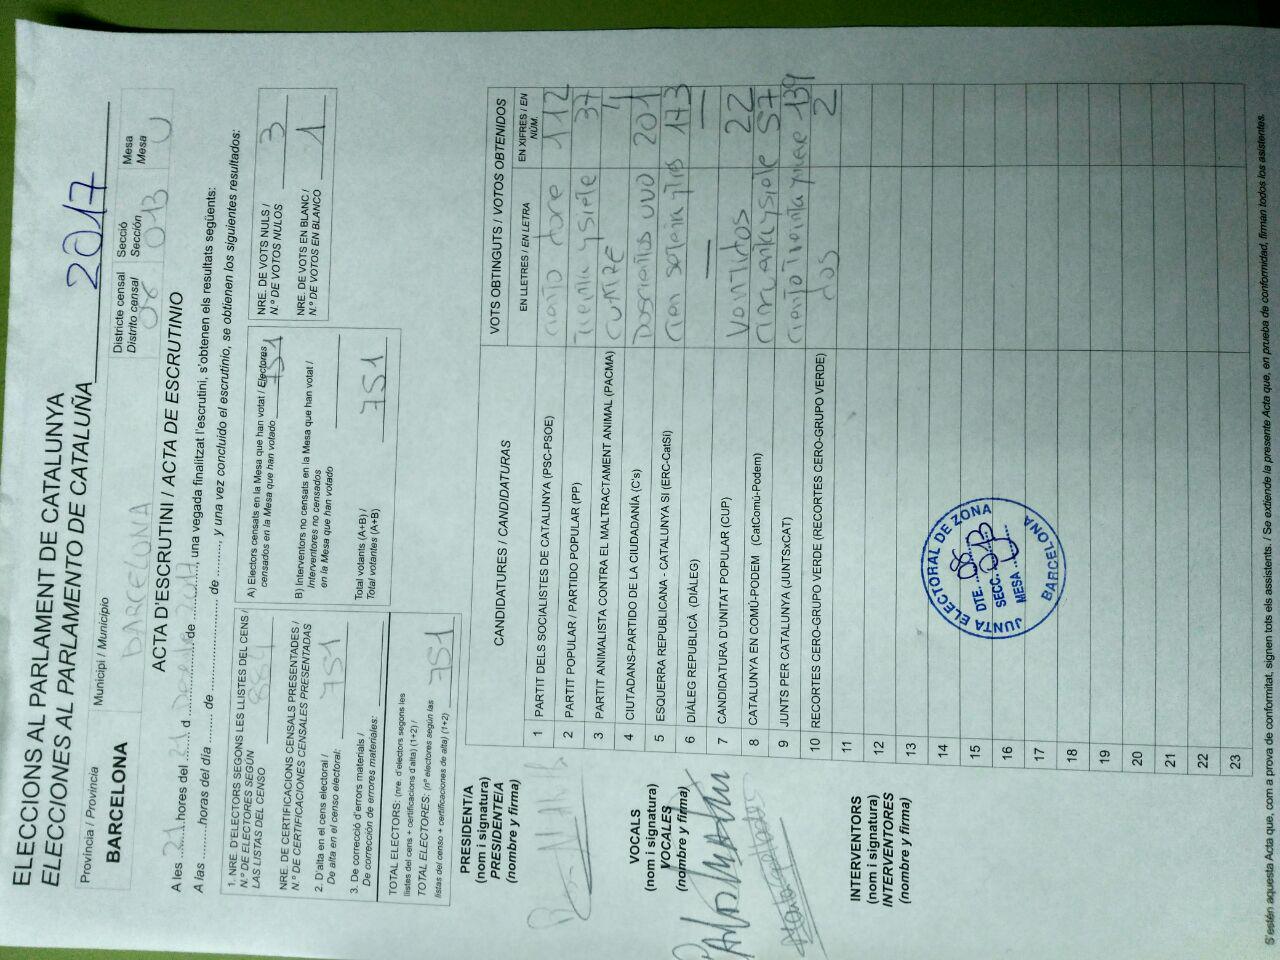 ELECCIONS AL PARLAMENT DE CATALUNYA
ELECCIONES AL PARLAMENTO DE CATALUÑA 2017
Provincia / Provincia
BARCELONA
Municipi / Municipio
BARCELONA
Districte censal
Distrito censal
08
Secció
Sección
013
Mesa
Mesa
U
ACTA D'ESCRUTINI / ACTA DE ESCRUTINIO
A les 21 hores del 21 d de 2017, una vegada finalitzat l'escrutini, s'obtenen els resultats següents:
A las .........horas del día ........ de ........................... de .........., y una vez concluido el escrutinio, se obtienen los siguientes resultados:
1. NRE. D'ELECTORS SEGONS LES LLISTES DEL CENS /
N.º DE ELECTORES SEGÚN
LAS LISTAS DEL CENSO 884
NRE. DE CERTIFICACIONS CENSALS PRESENTADES /
N.º DE CERTIFICACIONES CENSALES PRESENTADAS
2. D'alta en el cens electoral /
De alta en el censo electoral: 751
3. De correcció d'errors materials /
De corrección de errores materiales:
TOTAL ELECTORS: (nre. d'electors segons les
llistes del cens + certificacions d'alta) (1+2) /
TOTAL ELECTORES: (nº electores según las
listas del censo + certificaciones de alta) (1+2) 751
A) Electors censats en la Mesa que han votat / Electores
censados en la Mesa que han votado 751
B) Interventors no censats en la Mesa que han votat /
Interventores no censados
en la Mesa que han votado
Total votants (A+B) /
Total votantes (A+B) 751
NRE. DE VOTS NULS /
N.º DE VOTOS NULOS 3
NRE. DE VOTS EN BLANC /
N.º DE VOTOS EN BLANCO 1
PRESIDENT/A
(nom i signatura)
PRESIDENTE/A
(nombre y firma)
VOCALS
(nom i signatura)
VOCALES
(nombre y firma)
INTERVENTORS
(nom i signatura)
INTERVENTORES
(nombre y firma)
CANDIDATURES / CANDIDATURAS
VOTS OBTINGUTS / VOTOS OBTENIDOS
EN LLETRES / EN LETRA
EN XIFRES / EN NÚM.
1 PARTIT DELS SOCIALISTES DE CATALUNYA (PSC-PSOE) ciento doce 112
2 PARTIT POPULAR / PARTIDO POPULAR (PP) Treinta y siete 37
3 PARTIT ANIMALISTA CONTRA EL MALTRACTAMENT ANIMAL (PACMA) 4
4 CIUTADANS-PARTIDO DE LA CIUDADANÍA (C's) Doscientos uno 201
5 ESQUERRA REPUBLICANA - CATALUNYA SI (ERC-CatSí) Cien setenta y tres 173
6 DIÀLEG REPUBLICÀ (DIÀLEG) — —
7 CANDIDATURA D'UNITAT POPULAR (CUP) 22
8 CATALUNYA EN COMÚ-PODEM (CatComú-Podem) cincuenta y siete 57
9 JUNTS PER CATALUNYA (JUNTSxCAT) ciento Treinta y nueve 139
10 RECORTES CERO-GRUPO VERDE (RECORTES CERO-GRUPO VERDE) dos 2
11
12
13
14
15
16
17
18
19
20
21
22
23
JUNTA ELECTORAL DE ZONA
DTE. 08
SECC. 013
MESA U
BARCELONA
S'estén aquesta Acta que, com a prova de conformitat, signen tots els assistents. / Se extiende la presente Acta que, en prueba de conformidad, firman todos los asistentes.